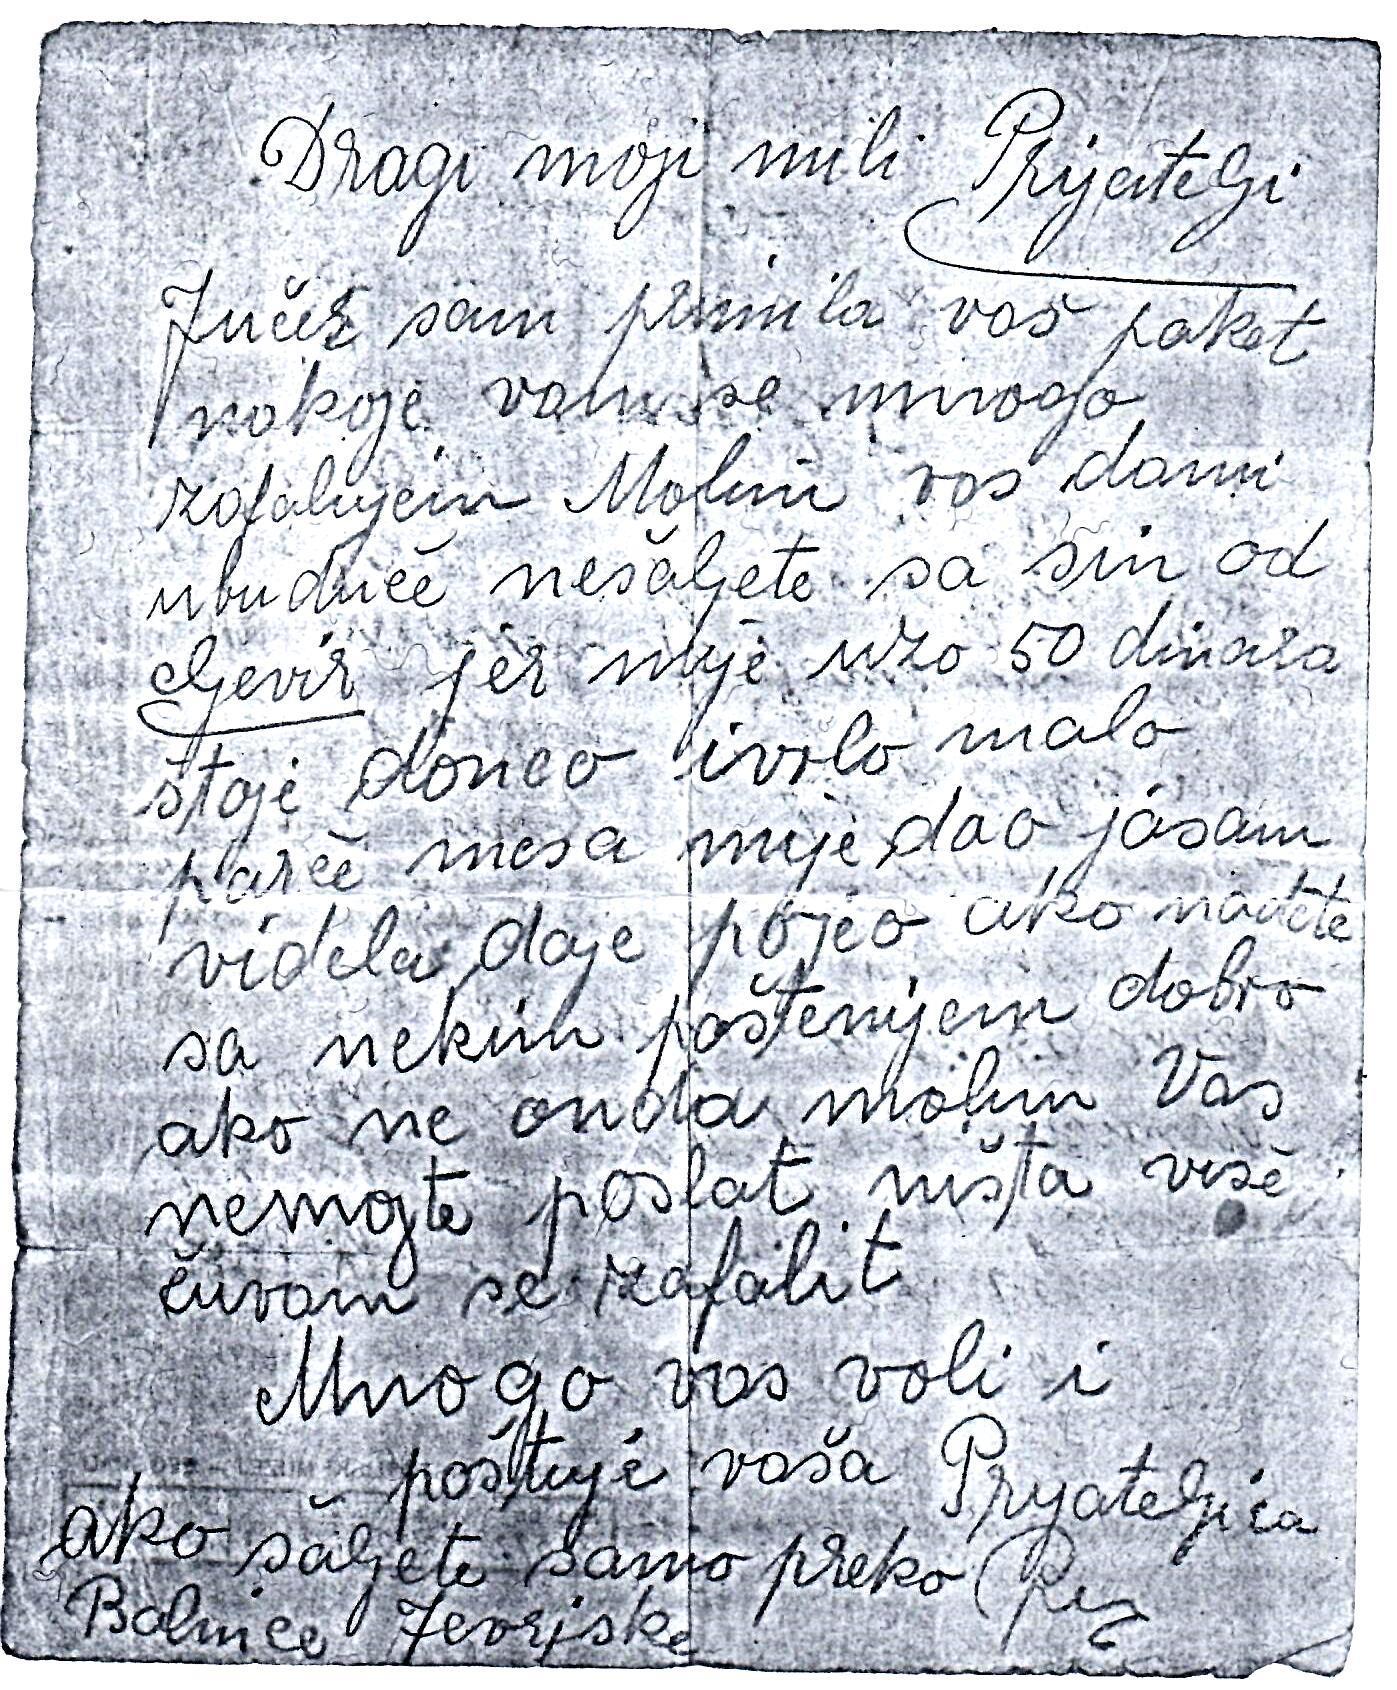 Dragi moji mili Prijatelji
Jučer sam primila vaš paket
nakoje vam se mnogo
zafalujem Molim vas dami
ubuduče nešaljete sa sin od
jer mije uzo 50 dinara
štoje doneo ivrlo malo
parče mesa mije dao jásam
videla daje pojeo ako nađete
sa nekim poštenijem dobro
ako ne onda molim Vas
nemojte poslat ništa više
čuvam se zafalit
Mnogo vas voli i
poštuje vaša Prijateljica
ako šaljete samo preko
Bolnice Jevrejske